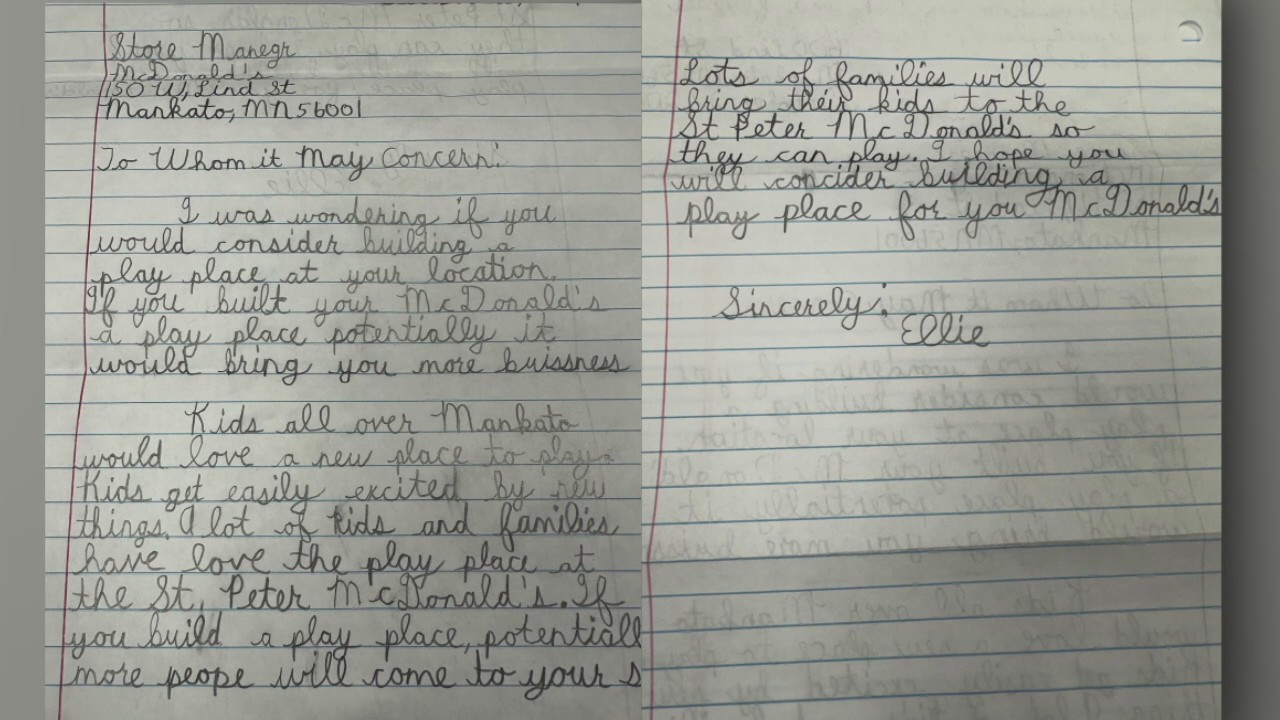 Store Manegr
McDonald's
150 W, Lind St
Mankato, MN 56001
To Whom it May Concern:
I was wondering if you
would consider building a
play place at your location.
If you built your McDonald's
a play place potentially it
would bring you more buissness
Kids all over Mankato
would love a new place to play.
Kids get easily excited by new
things. A lot of kids and families
have love the play place at
the St. Peter McDonald's. If
you build a play place, potentiall
more peope will come to your s
Lots of families will
bring their kids to the
St Peter McDonald's so
they can play. I hope you
will concider building a
play place for you McDonald's
Sincerely:
Ellie